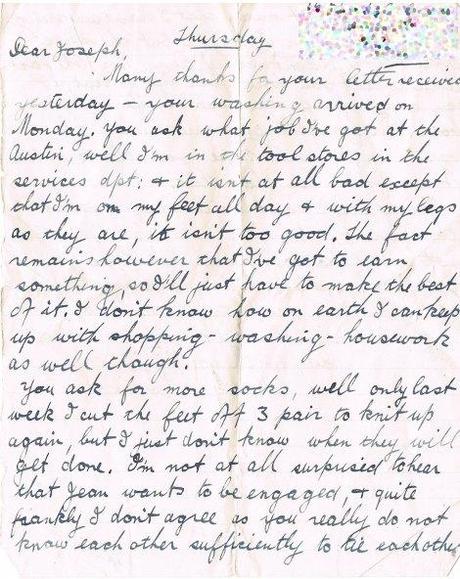 Thursday
Dear Joseph,
Many thanks for your letter received
yesterday – your washing arrived on
Monday. You ask what job I've got at the
Austin, well I'm in the tool stores in the
services dpt: & it isn't at all bad except
that I'm on my feet all day & with my legs
as they are, it isn't too good. The fact
remains however that I've got to earn
something, so I'll just have to make the best
of it. I don't know how on earth I can keep
up with shopping – washing – housework
as well though.
You ask for more socks, well only last
week I cut the feet off 3 pair to knit up
again, but I just don't know when they will
get done. I'm not at all surprised to hear
that Jean wants to be engaged, & quite
frankly I don't agree as you really do not
know each other sufficiently to tie each other